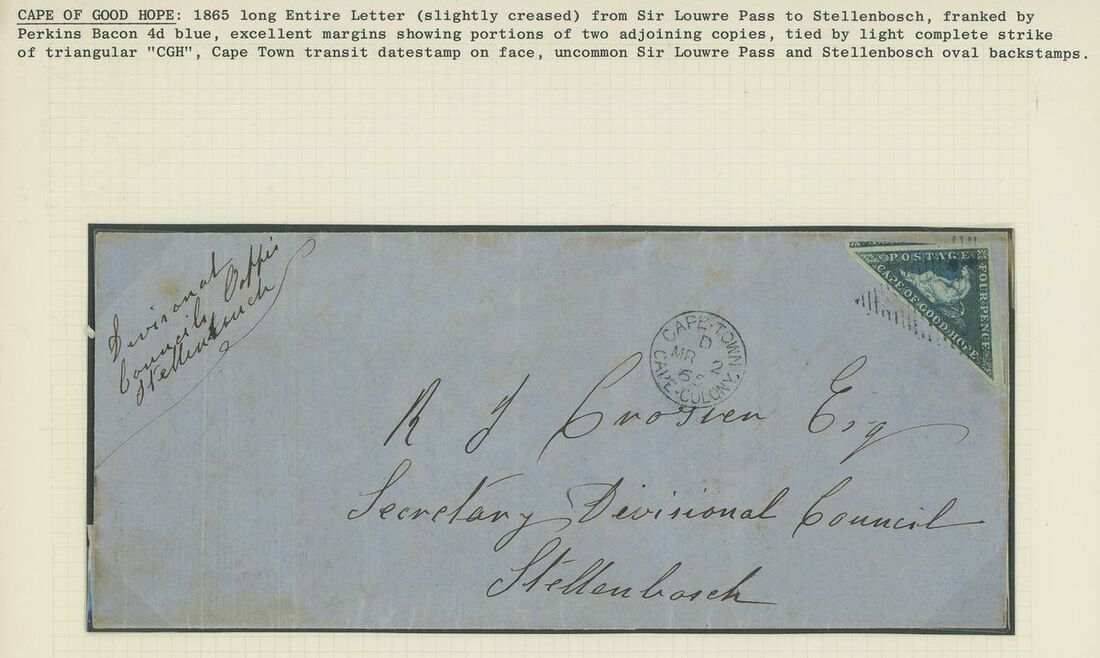 CAPE OF GOOD HOPE: 1865 long Entire Letter (slightly creased) from Sir Louwre Pass to Stellenbosch, franked by
Perkins Bacon 4d blue, excellent margins showing portions of two adjoining copies, tied by light complete strike
of triangular "CGH", Cape Town transit datestamp on face, uncommon Sir Louwre Pass and Stellenbosch oval backstamps.
Divisional
Councils
Stellenbosch
POSTAGE
FOUR PENCE
CAPE OF GOOD HOPE
CAPE-TOWN
D
MR 2
65
CAPE-COLONY
R J Esq
Secretary Divisional Council
Stellenbosch